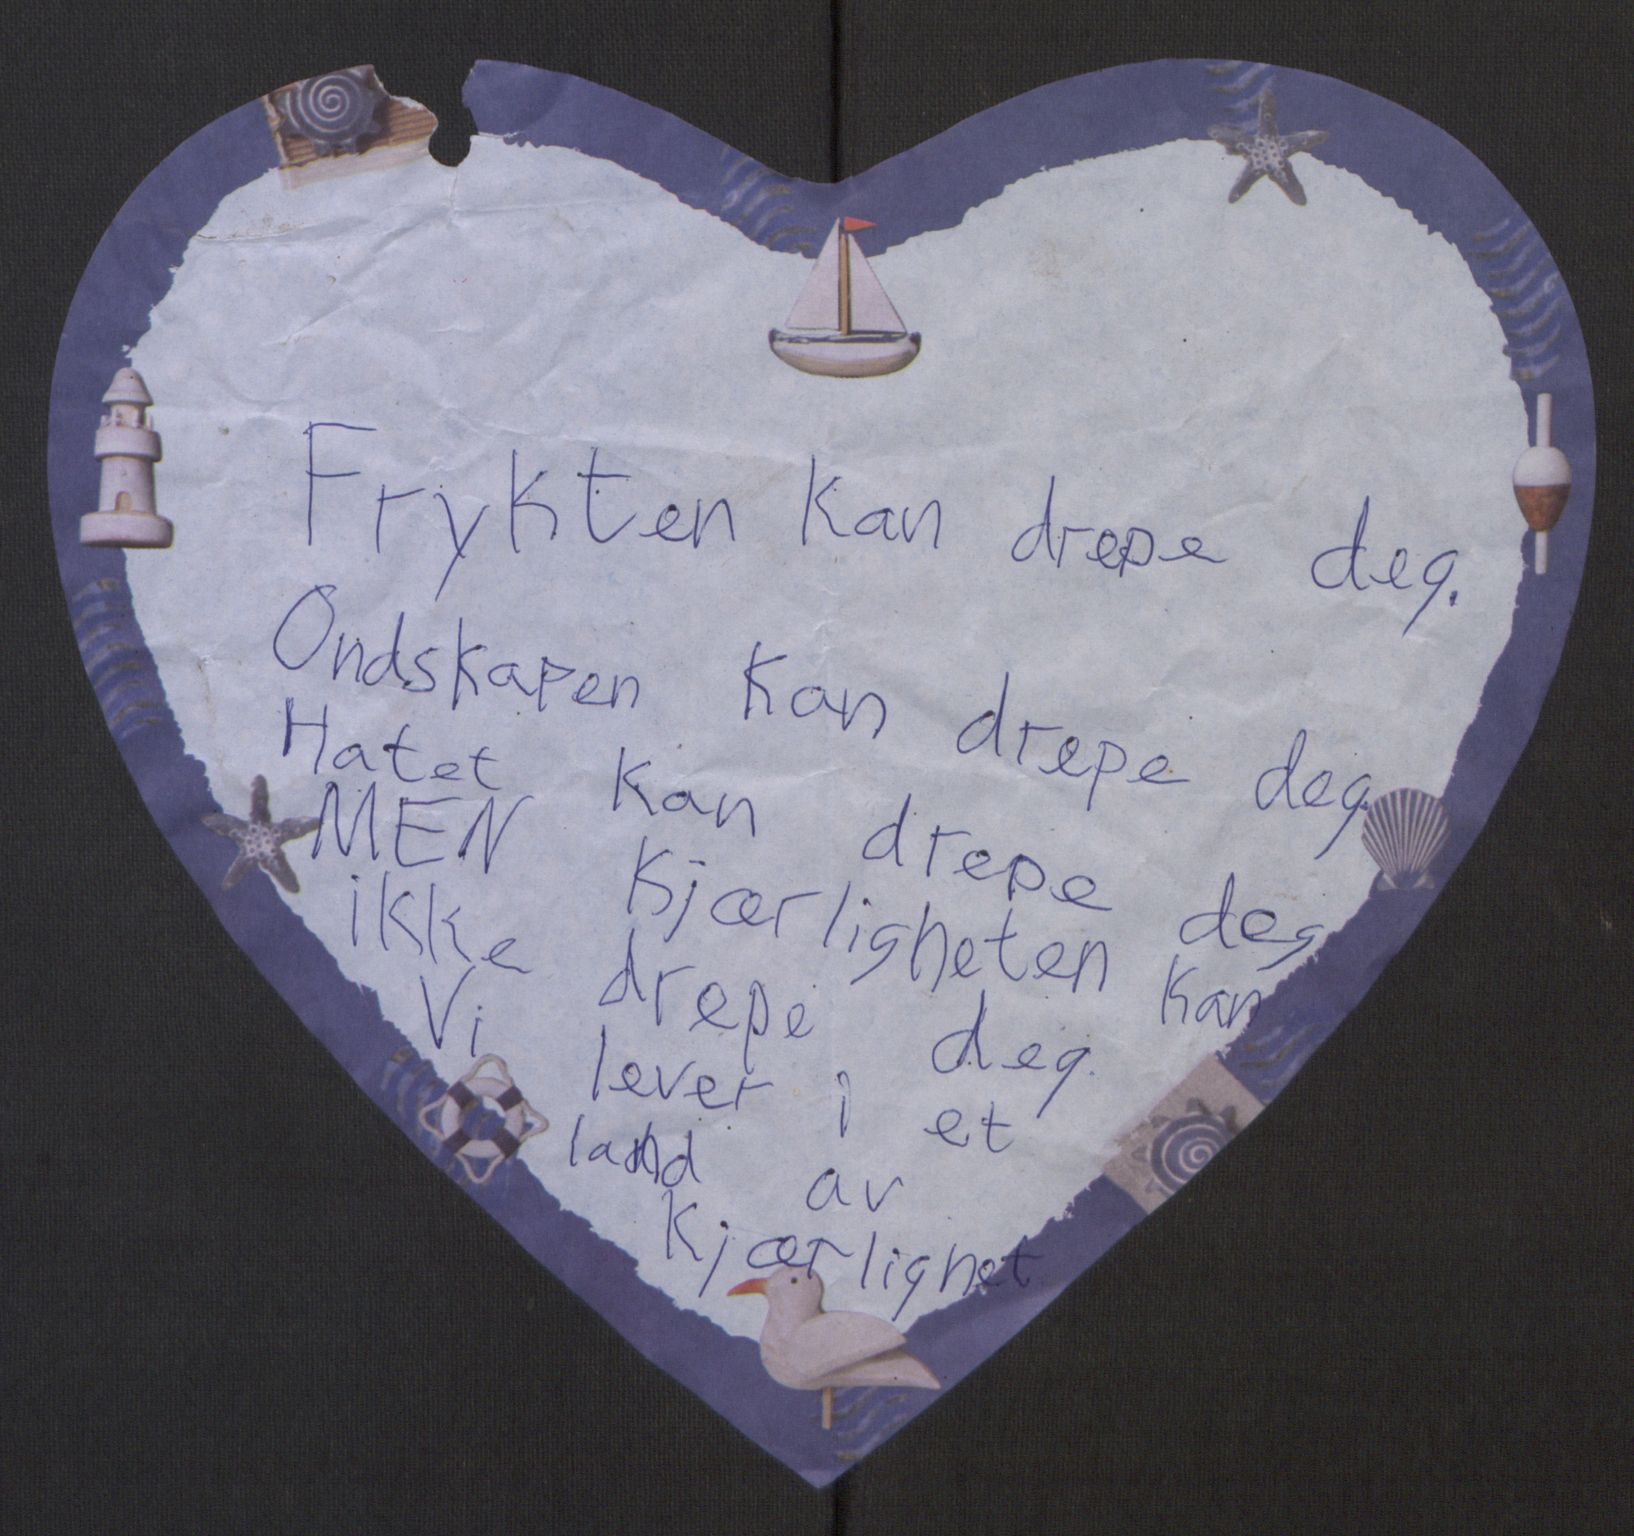 Frykten kan drepe deg.
Ondskapen kan drepe deg.
Hatet kan drepe deg
MEN kjærligheten kan
ikke drepe deg.
Vi lever i et
land av
kjærlighet